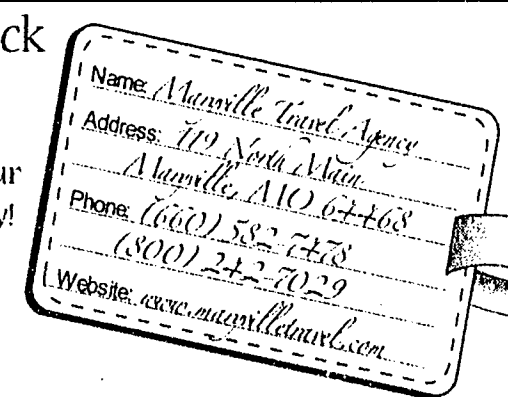 ck
Name: Maryville Travel Agency
Address: 119 North Main
Maryville, MO 64468
ur
Phone: (660) 582-7478
y!
(800) 242-7029
Website: www.maryvilletravel.com